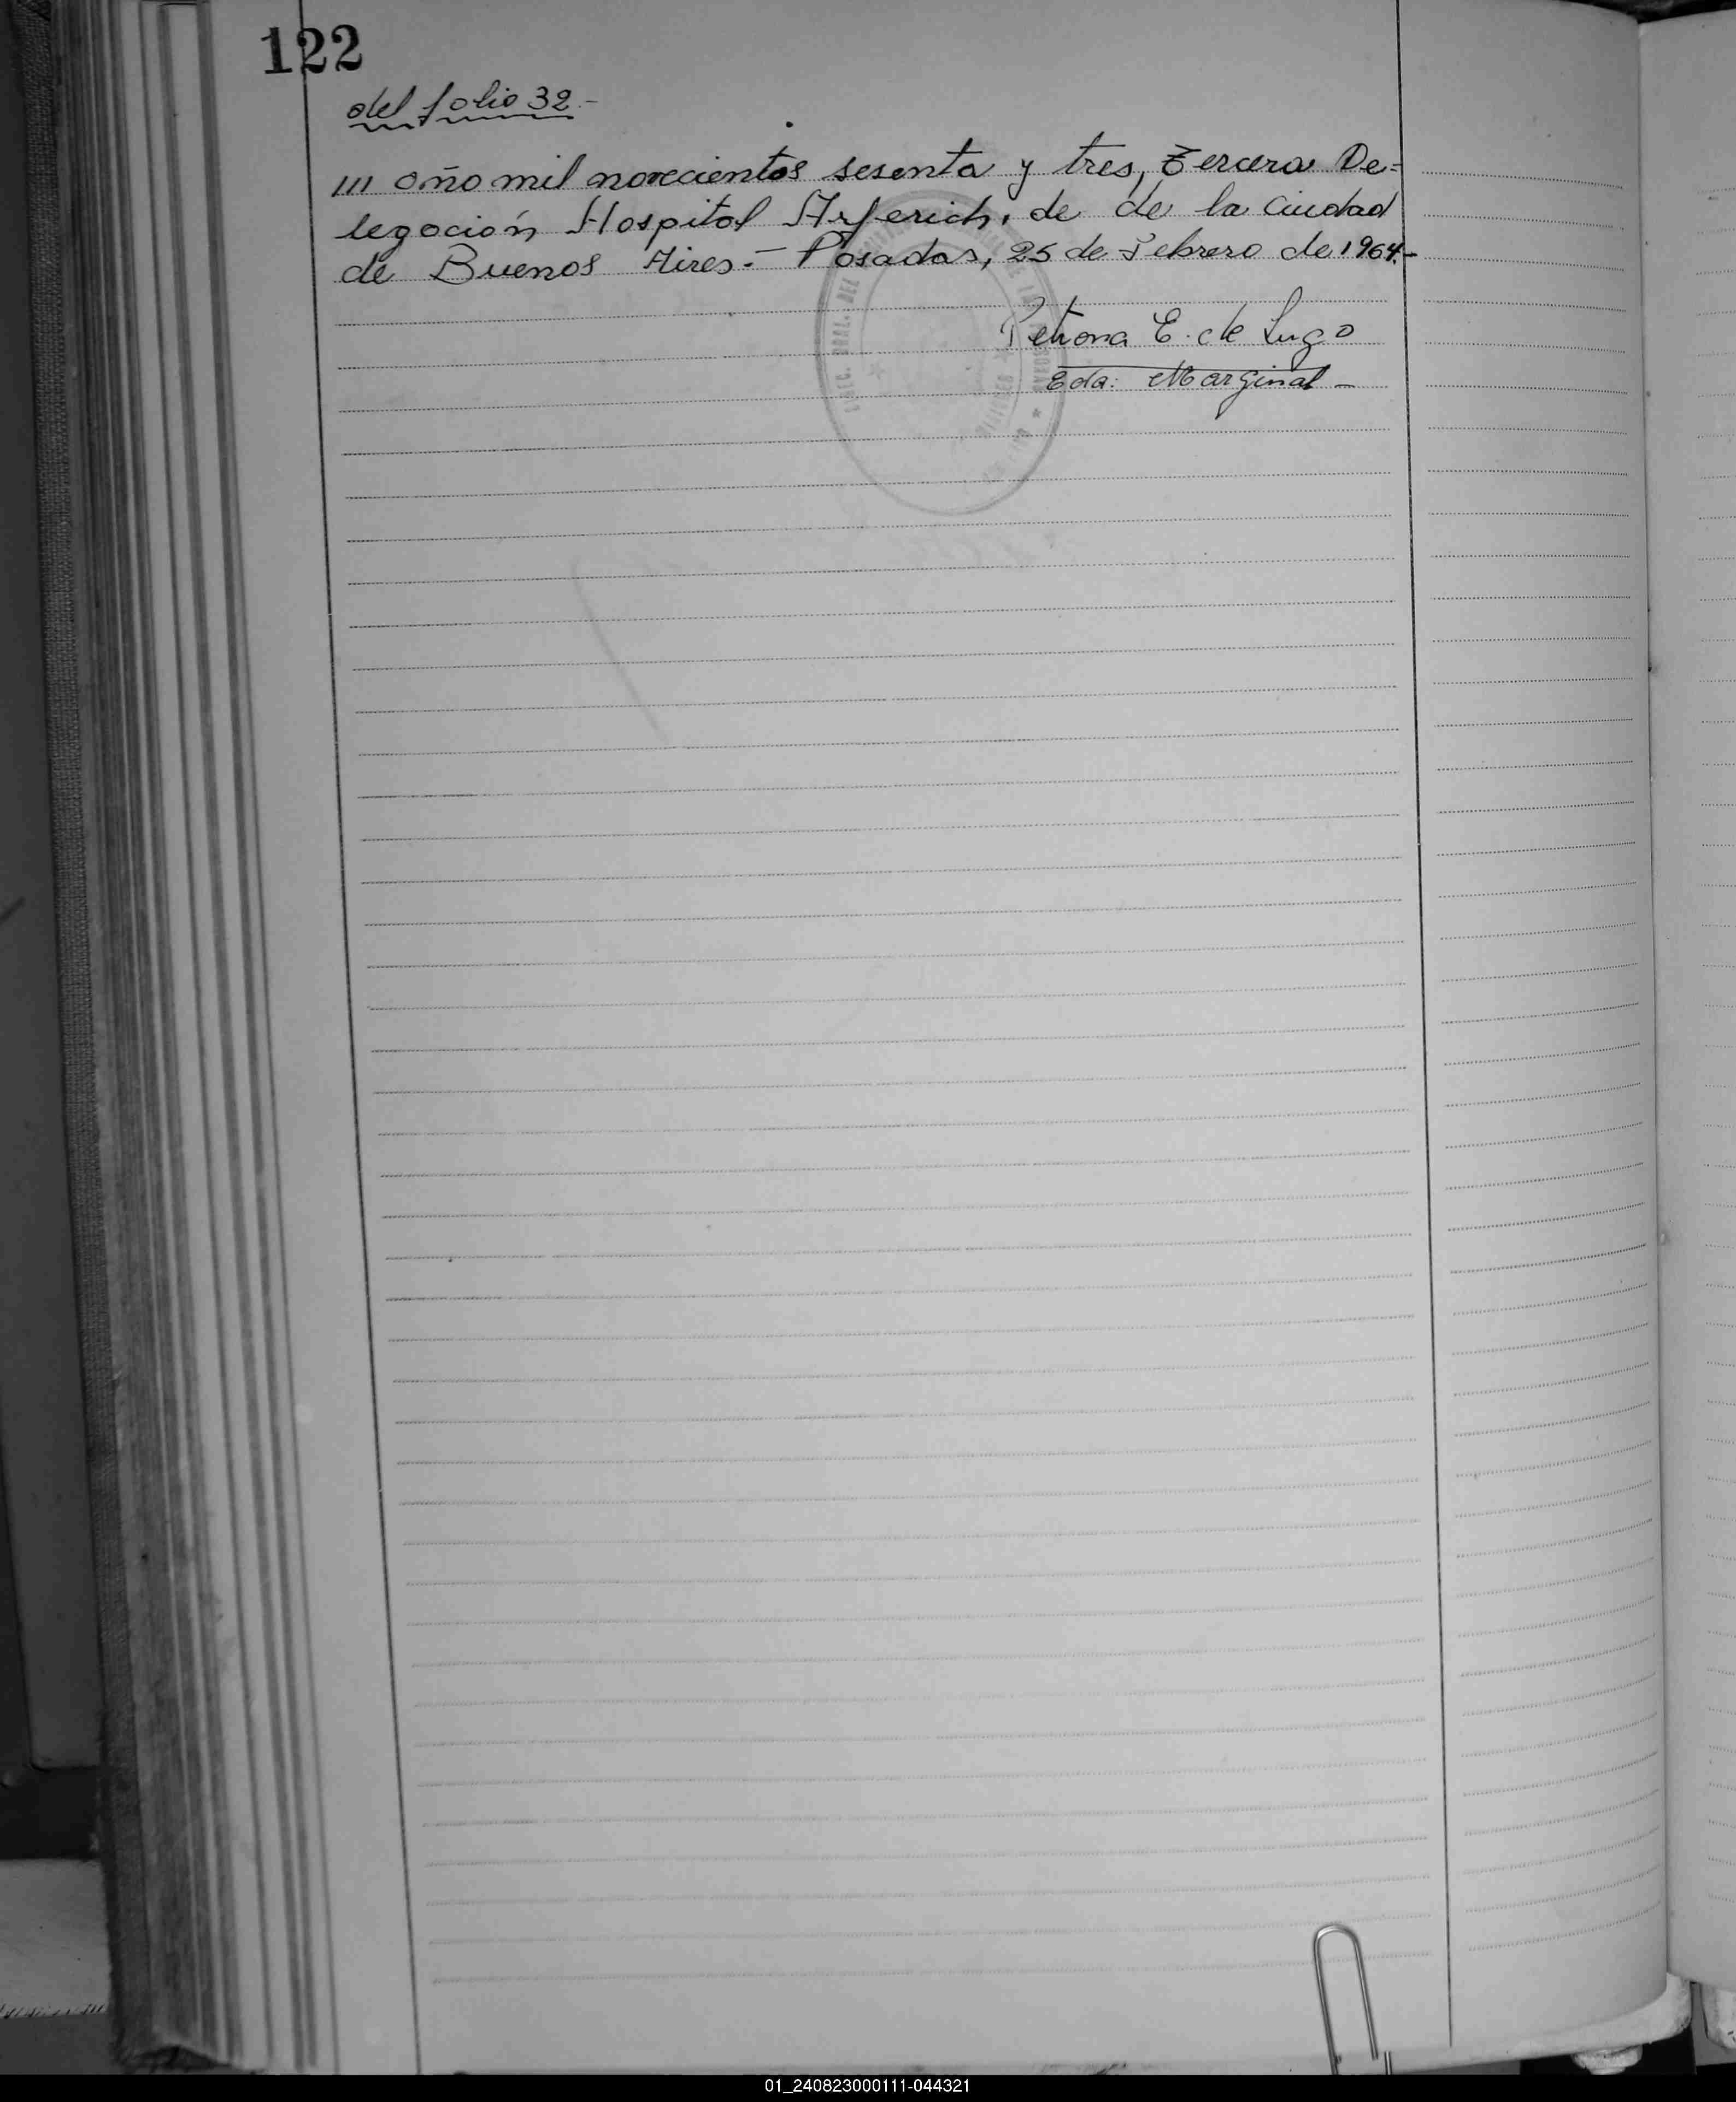 122
del folio 32.-
/// año mil novecientos sesenta y tres, tercera De=
legación Hospital Arferich, de de la Ciudad
de Buenos Aires.- Posadas, 25 de Febrero de 1964.-
Petrona E. de Lugo
Eda: Marginal -
01_240823000111-044321